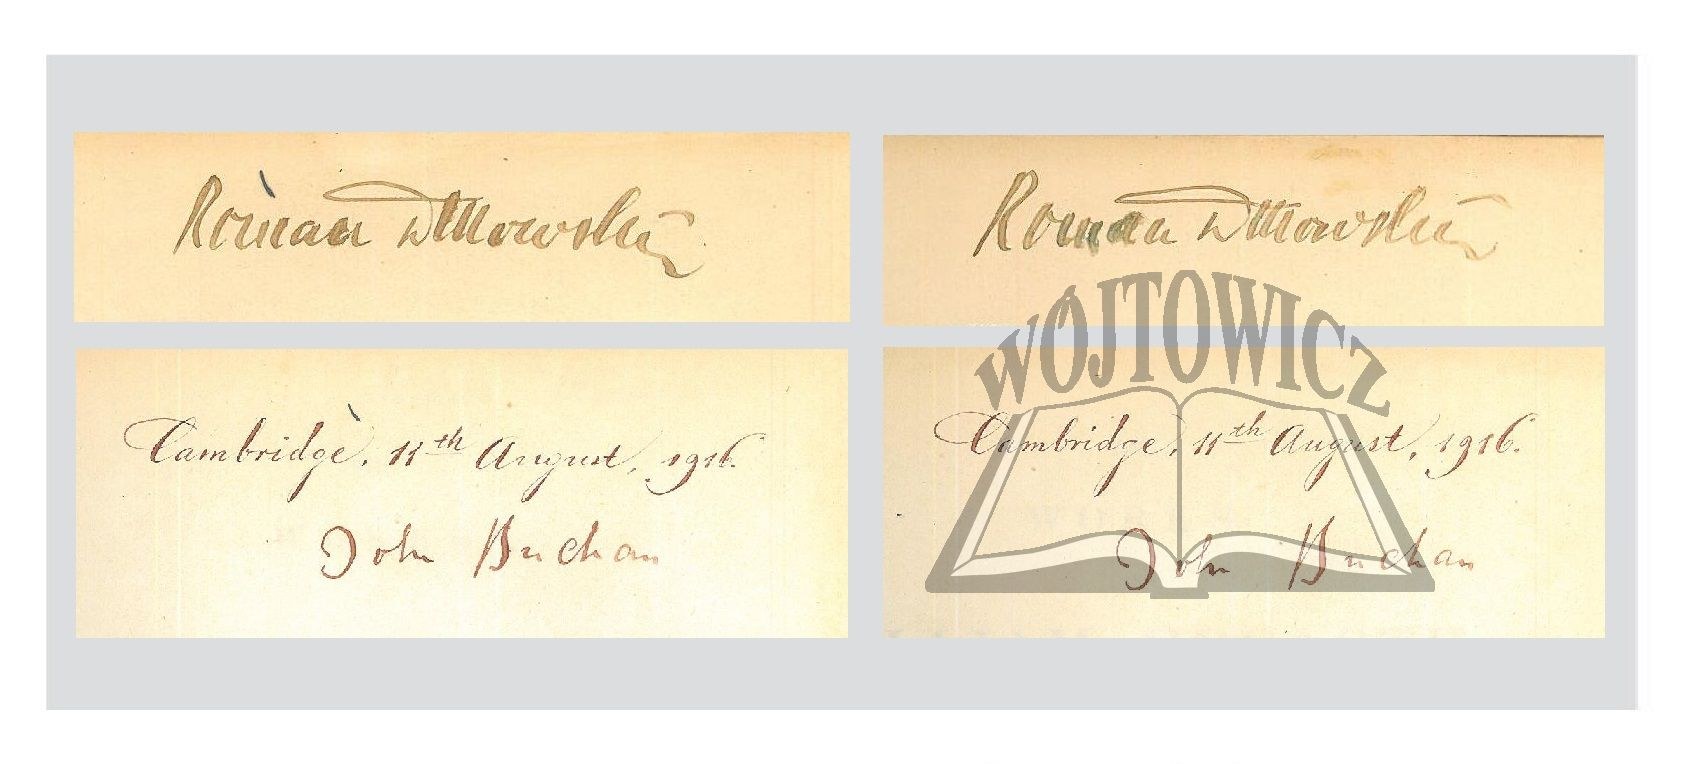 Roman Dmowski
Roman Dmowski
Cambridge, 11th August, 1916.
John Buchan
Cambridge, 11th August, 1916.
John Buchan
WÓJTOWICZ